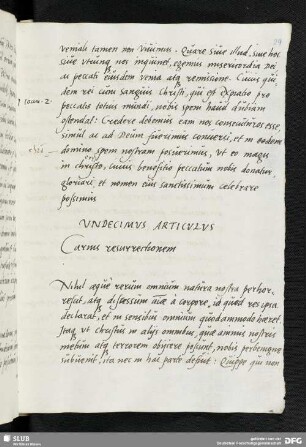 veniali tamen non vivimus. Quare sive illud, sive hoc
sive utrung nos inquinet, egemus misericordia Dei
ac peccati eiusdem venia atq remissione. Cuius qui
1 Ioan. 2. dem rei cum sanguis Christi, qui est expiatio pro
peccatis totius mundi, nobis spem haud dubiam
ostendat: Credere debemus eam nos consecuturos esse,
simul ac ad Deum fuerimus conversi, et in eodem
domino spem nostram posuerimus, ut eo magis
in christo, cuius beneficio peccatum nobis donatur,
gloriari, et nomen eius sanctissimum celebrare
possimus
VNDECIMVS ARTICVLVS
Carnis resurrectionem
Nihil aeque rerum omnium natura nostra perhor
rescit, atq discessum a corpore, id quod res ipsa
declarat, et in sensibus omnium quodammodo haeret.
Itaq ut Christus in aliis omnibus, quae animis nostris
metum atq terrorem obiicere possunt, nobis perbenigne
subvenit, ita nec in hac parte defuit. Quippe qui non
SLUB
DFG